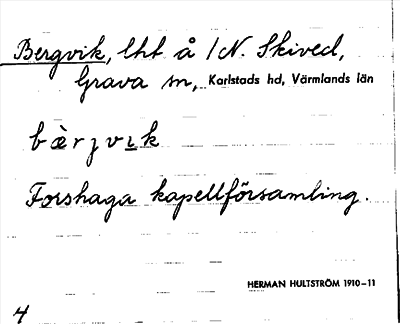 Bergvik, lht å /N. Skived,
Grava sn, Karlstads hd, Värmlands län
bæ̀rjvɩk
Forshaga kapellförsamling.
HERMAN HULTSTRÖM 1910–11
4